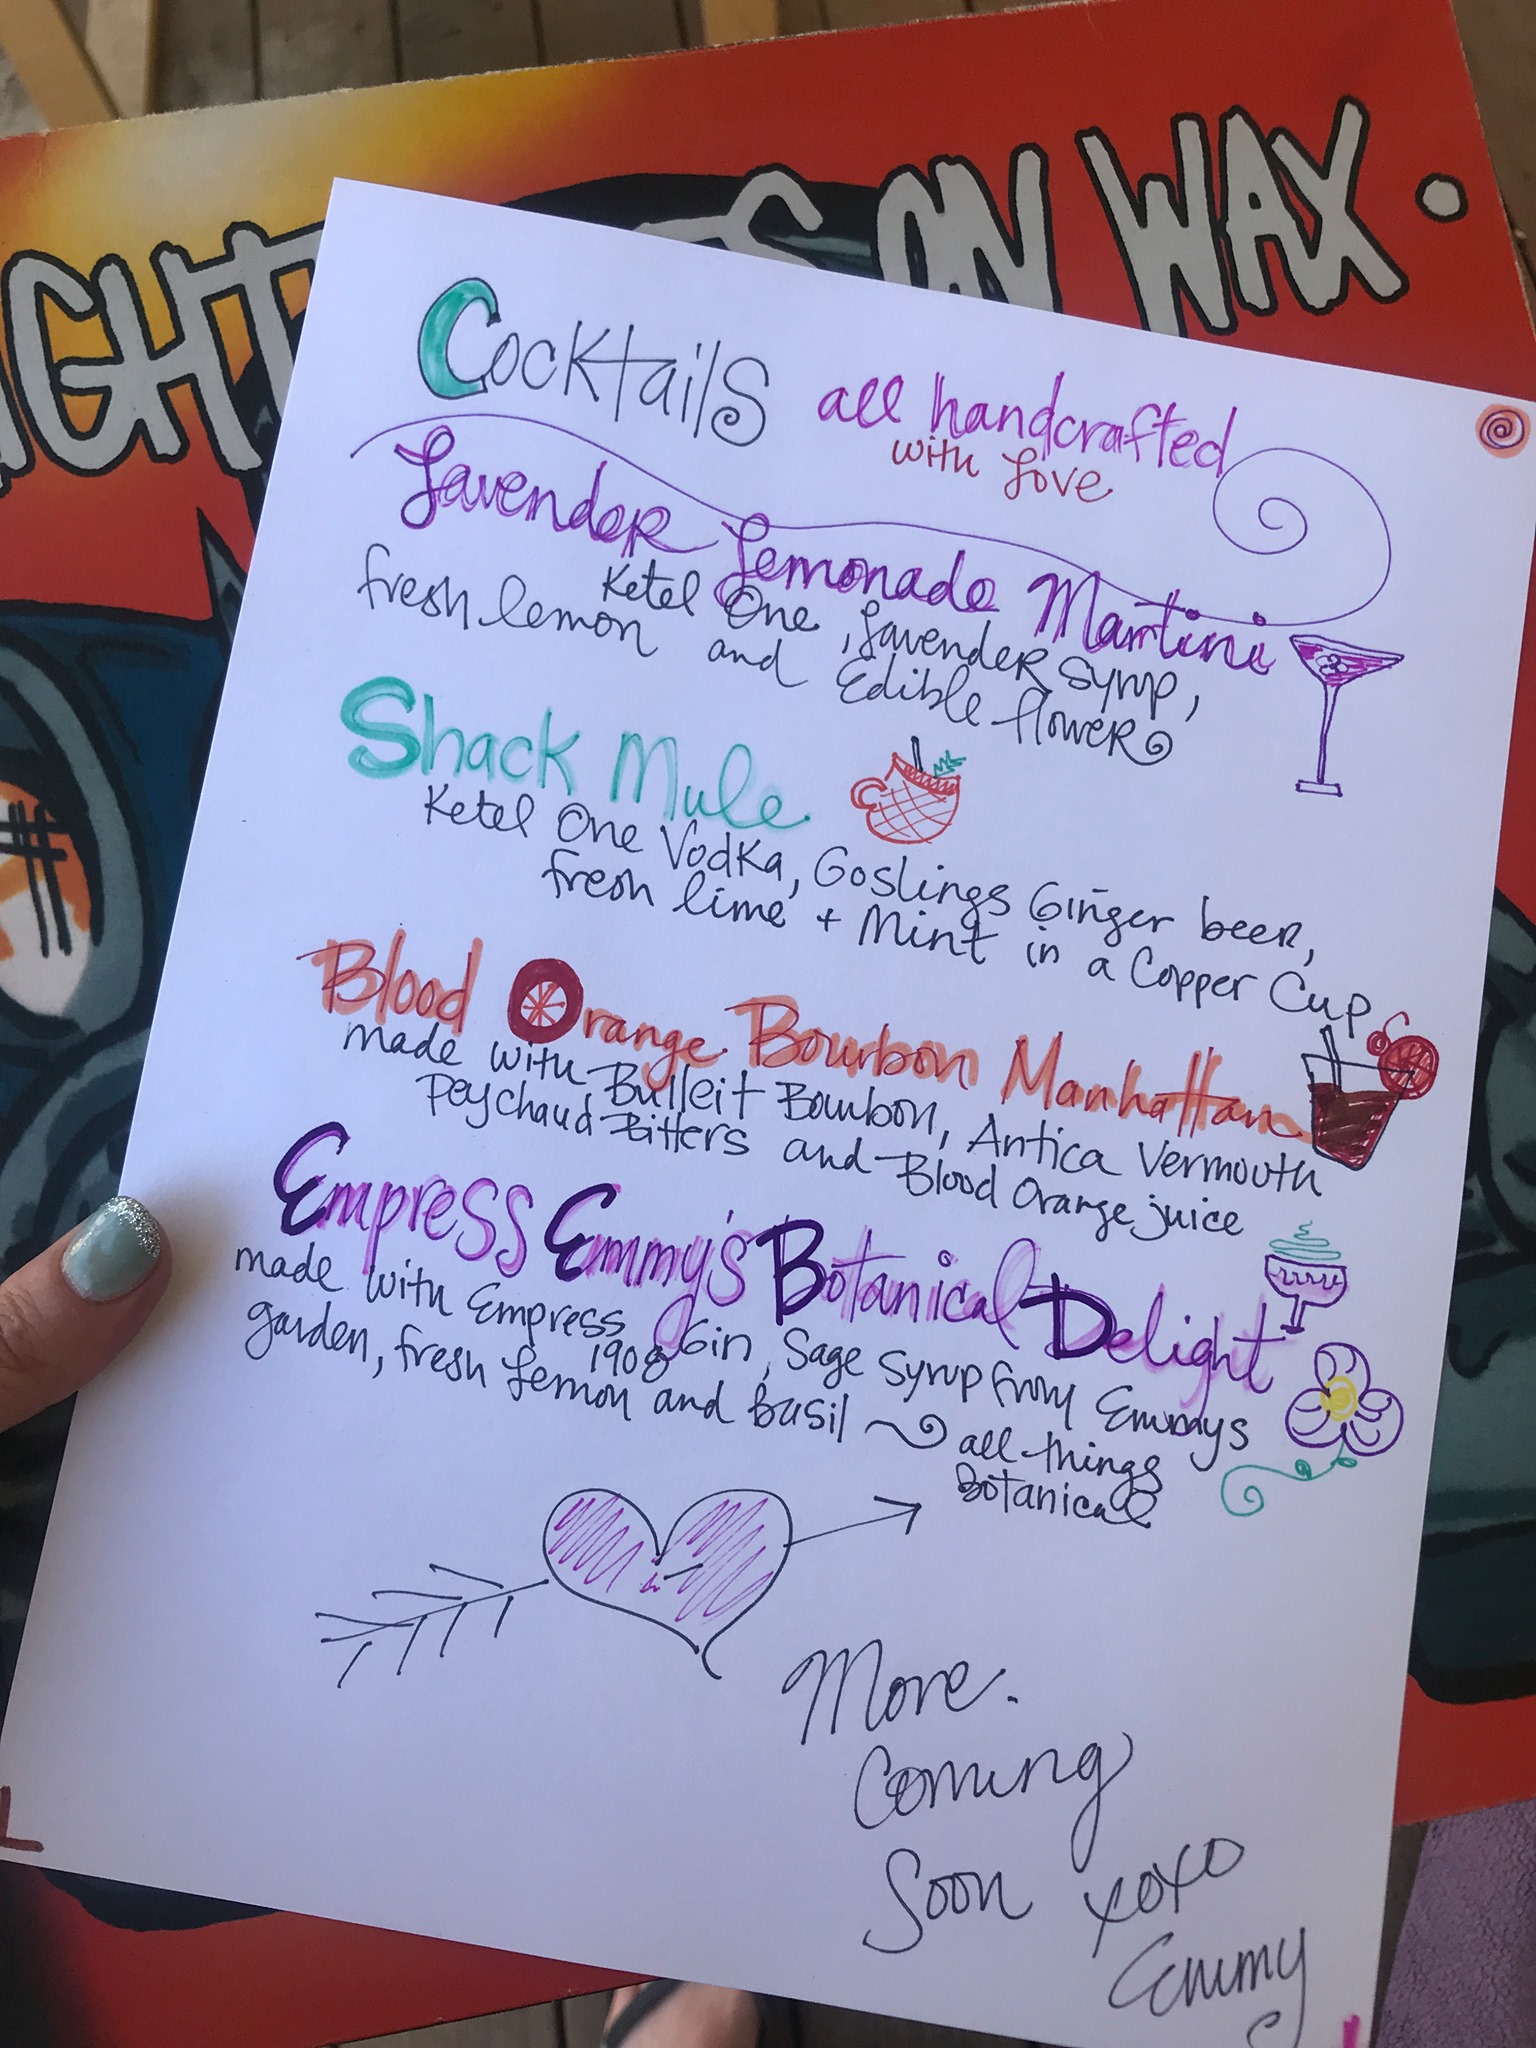 IGHT S ON WAX.
Cocktails all handcrafted
with Love
Lavender Lemonade Martini
Ketel One, Lavender syrup,
fresh lemon and Edible flower
Shack Mule
Ketel One Vodka, Goslings Ginger beer,
fresh lime + Mint in a Copper Cup
Blood Orange Bourbon Manhattan
made with Bulleit Bourbon, Antica Vermouth
Peychaud Bitters and Blood Orange juice
Empress Emmy's Botanical Delight
made with Empress 1908 Gin, Sage Syrup from Emmys
garden, fresh Lemon and Basil
all things
Botanical
More.
Coming
Soon xoxo
Emmy